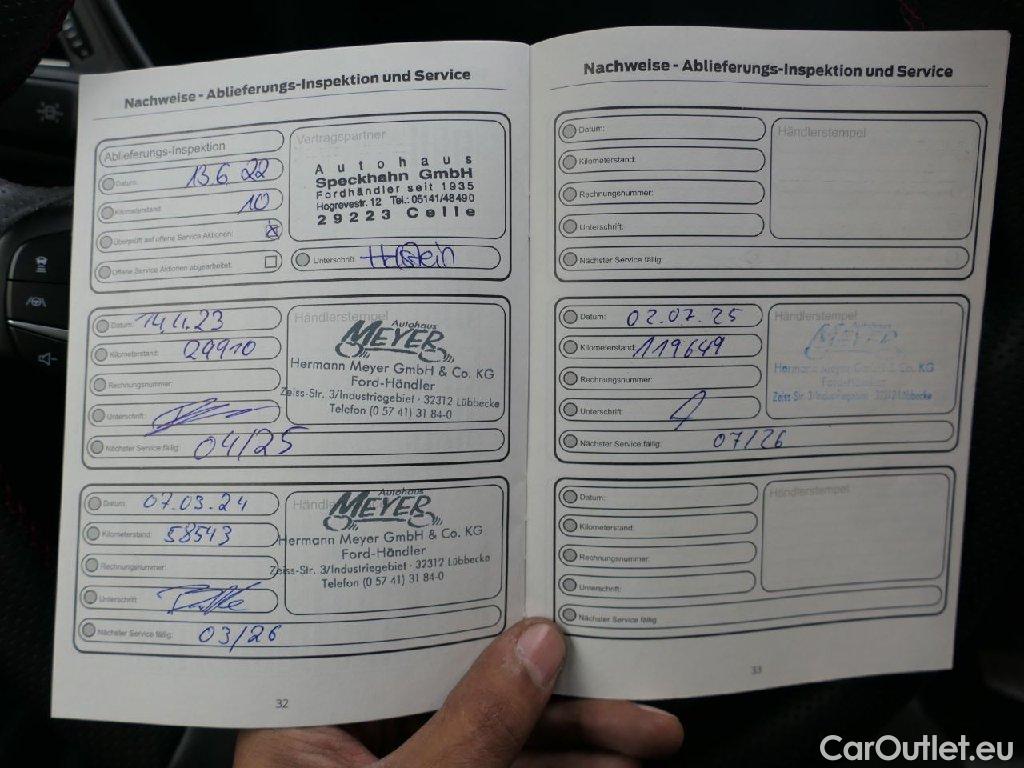 Nachweise - Ablieferungs-Inspektion und Service
Ablieferungs-Inspektion
Datum: 13.6.22
Kilometerstand: 10
Überprüft auf offene Service Aktionen: ☒
Offene Service Aktionen abgearbeitet: ☐
Vertragspartner
Autohaus
Speckhahn GmbH
Fordhändler seit 1935
Hogrevestr. 12 Tel.: 05141/48490
29223 Celle
Unterschrift:
Datum: 14.4.23
Kilometerstand: 29910
Rechnungsnummer:
Unterschrift:
Nächster Service fällig: 04/25
Händlerstempel
Autohaus
MEYER
Hermann Meyer GmbH & Co. KG
Ford-Händler
Zeiss-Str. 3/Industriegebiet · 32312 Lübbecke
Telefon (0 57 41) 31 84-0
Datum: 07.03.24
Kilometerstand: 58543
Rechnungsnummer:
Unterschrift:
Nächster Service fällig: 03/26
Autohaus
MEYER
Hermann Meyer GmbH & Co. KG
Ford-Händler
Zeiss-Str. 3/Industriegebiet · 32312 Lübbecke
Telefon (0 57 41) 31 84-0
32
Nachweise - Ablieferungs-Inspektion und Service
Datum:
Kilometerstand:
Rechnungsnummer:
Unterschrift:
Nächster Service fällig:
Händlerstempel
Datum: 02.07.25
Kilometerstand: 119649
Rechnungsnummer:
Unterschrift:
Nächster Service fällig: 07/26
Händlerstempel
Autohaus
MEYER
Hermann Meyer GmbH & Co. KG
Ford-Händler
Zeiss-Str. 3/Industriegebiet · 32312 Lübbecke
Datum:
Kilometerstand:
Rechnungsnummer:
Unterschrift:
Nächster Service fällig:
Händlerstempel
33
CarOutlet.eu